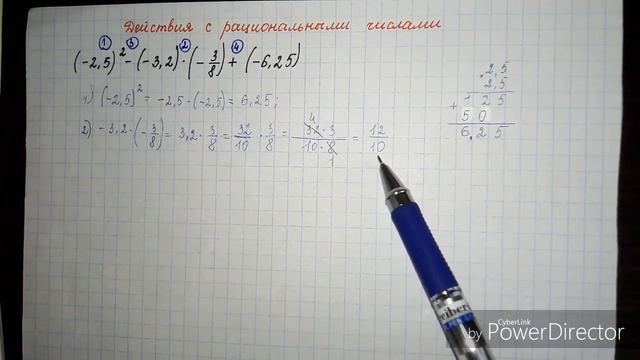 Действия с рациональными числами
① ③ ② ④
(-2,5)² - (-3,2) · (-3/8) + (-6,25)
1) (-2,5)² = -2,5 · (-2,5) = 6,25;
2) -3,2 · (-3/8) = 3,2 · 3/8 = 32/10 · 3/8 = 32 · 3/10 · 8 = 12/10
4
1
2,5
2,5
+ 1 2 5
5 0
6,2 5
CyberLink
by PowerDirector